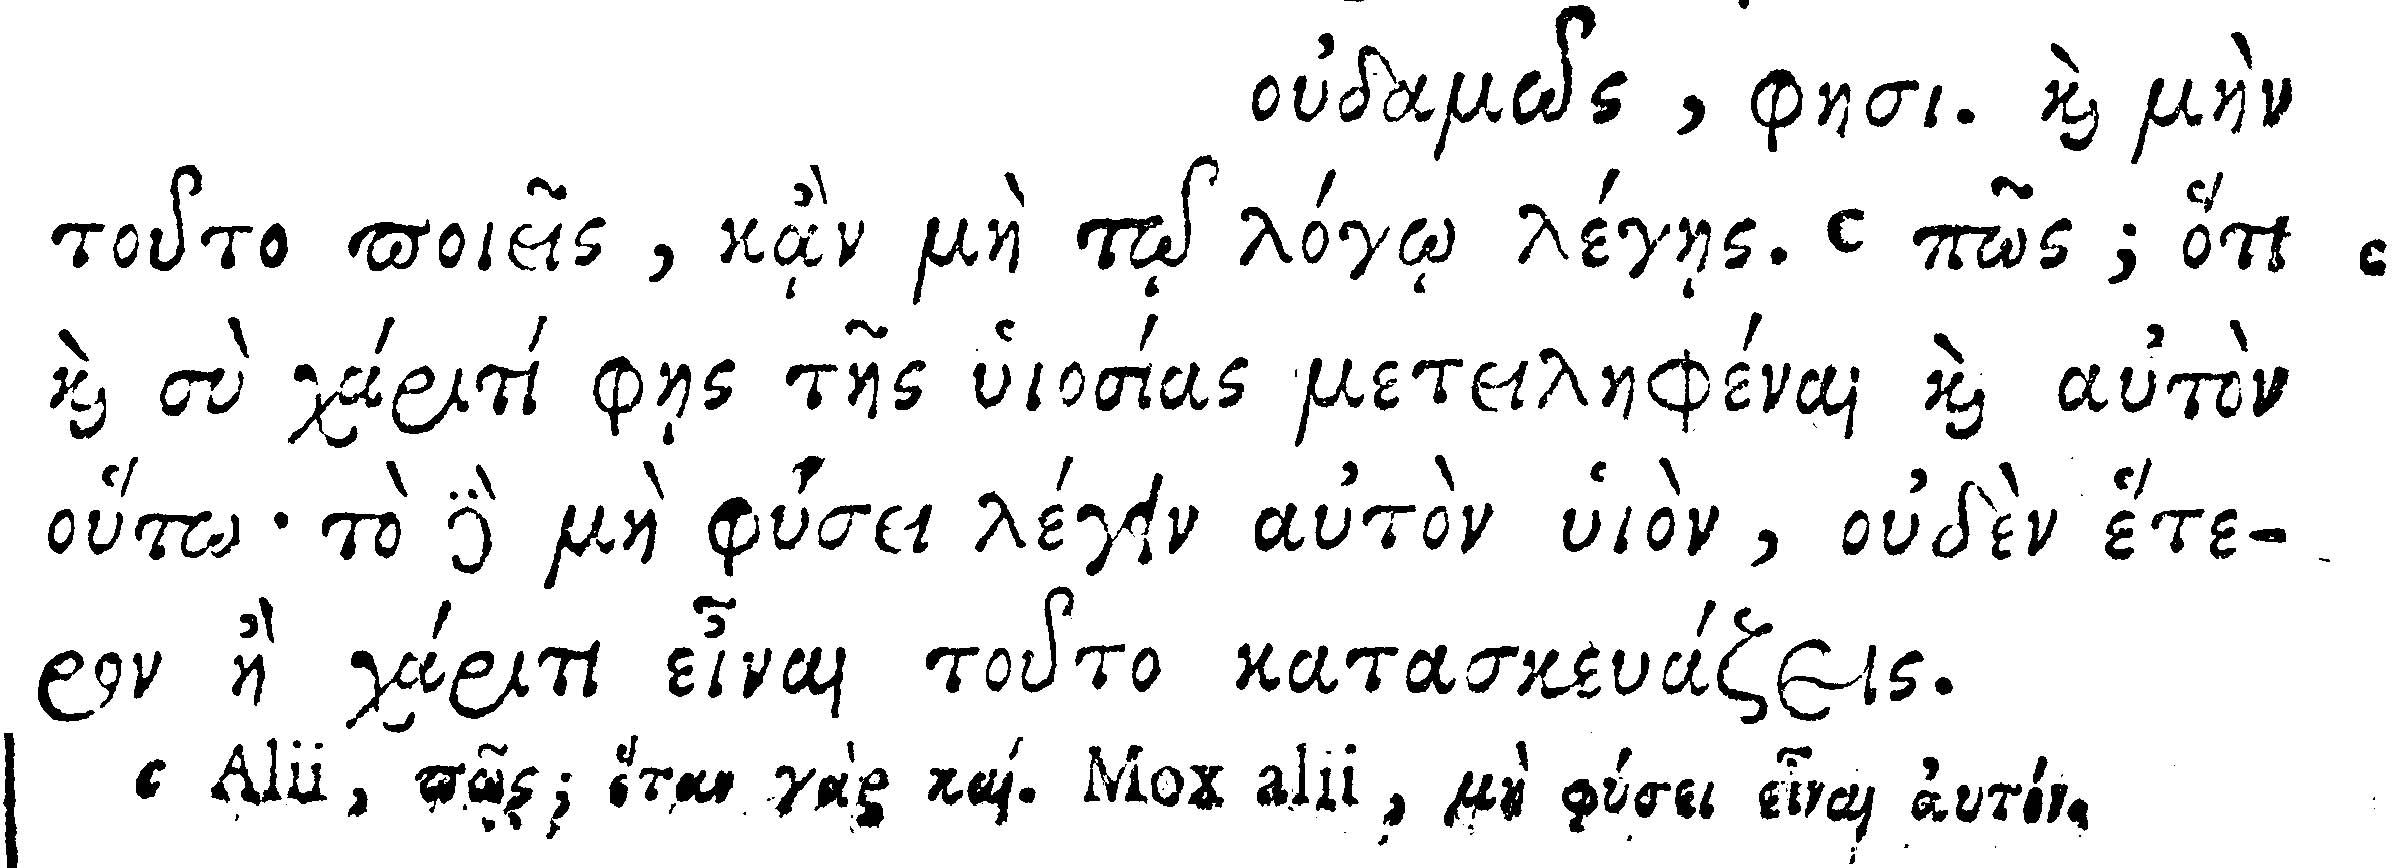 οὐδαμῶς, φησι. ϗ̀ μὴν
τοῦτο ποιεῖς, κᾂν μὴ τῷ λόγῳ λέγῃς. c πῶς; ὅτι c
ϗ̀ σὺ χάριτί φῃς τῆς ὑιοσίας μετειληφέναι ϗ̀ αὐτὸν
οὕτω· τὸ δὲ μὴ φύσει λέγειν αὐτὸν ὑιὸν, οὐδὲν ἕτε-
ρον ἢ χάριτι εἶναι τοῦτο κατασκευάζεις.
c Alii, πῶς; ὅταν γὰρ καί. Mox alii, μὴ φύσει εἶναι ἀυτόν.